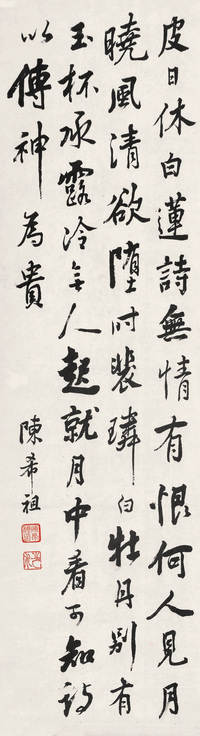 皮日休白蓮詩無情有恨何人見月
曉風清欲墮時裴璘白牡丹別有
玉杯承露冷無人起就月中看可知詩
以傳神為貴
陳希祖